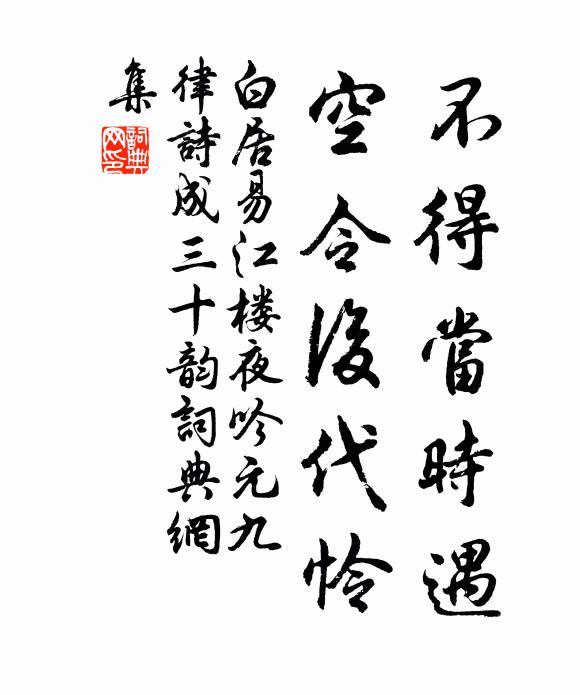 不得當時遇
空令後代怜
白居易江楼夜吟元九
律詩成三十韵詞典網
集
詞典
网印